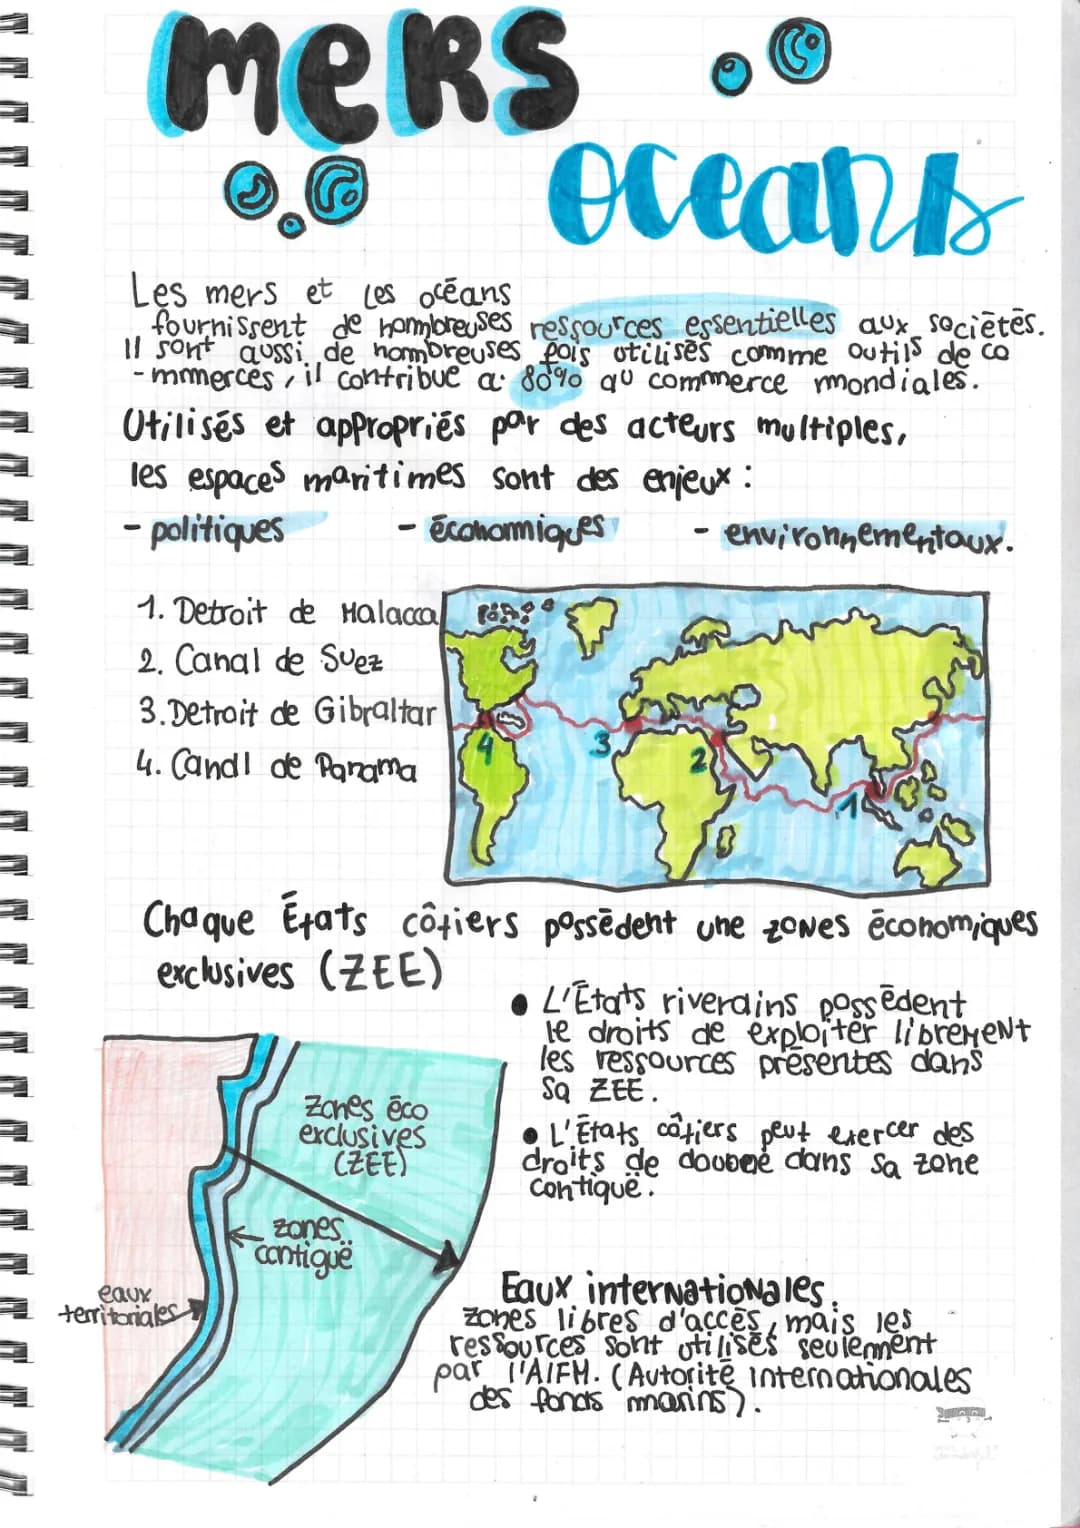 mers
oceans
Les mers et les océans
fournissent de nombreuses ressources essentielles aux sociétés.
Il sont aussi de nombreuses fois utilisés comme outils de co
-mmerces, il contribue a: 80% au commerce mondiales.
Utilisés et appropriés par des acteurs multiples,
les espaces maritimes sont des enjeux :
- politiques - économiques - environnementaux.
1. Detroit de Malacca
2. Canal de Suez
3. Detroit de Gibraltar
4. Canal de Panama
4
3
2
1
Chaque États côtiers possèdent une zones économiques
exclusives (ZEE)
• L'États riverains possèdent
le droits de exploiter librement
les ressources présentes dans
sa ZEE.
• L'États côtiers peut exercer des
droits de dans sa zone
contiguë.
Zones éco
exclusives
(ZEE)
zones
contiguë
eaux
territoriales
Eaux internationales.
zones libres d'accès, mais les
ressources sont utilisés seulement
par l'AIFM. (Autorité internationales
des fonds marins).